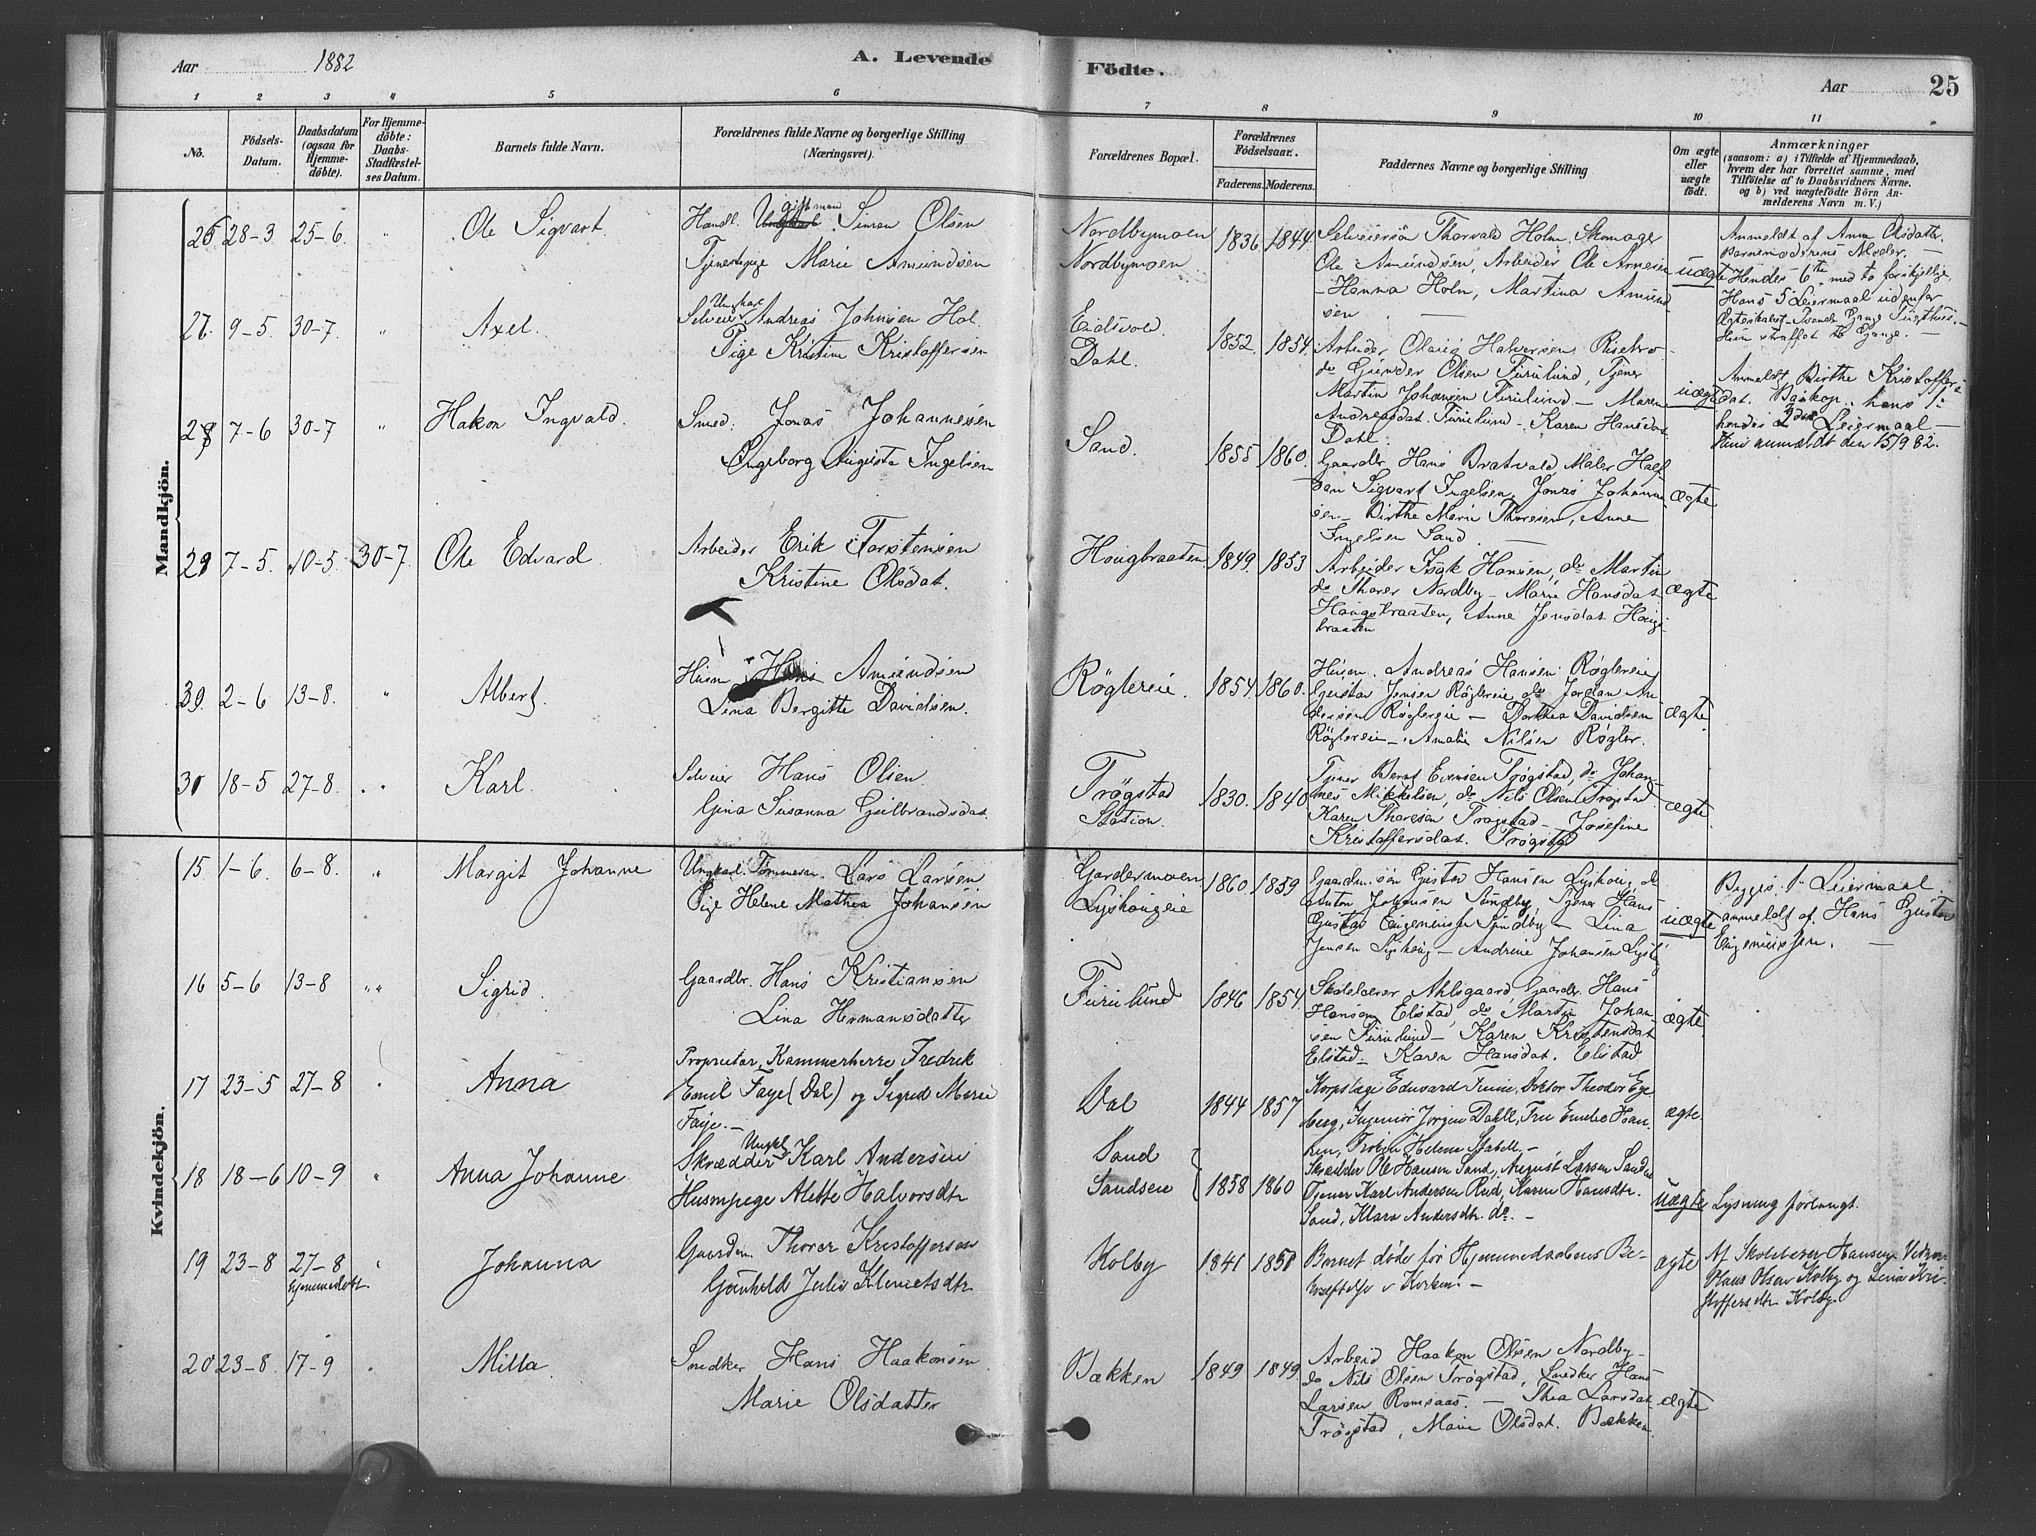 Aar 1882
A. Levende
Födte.
Aar
25
1 2 3 4 5 6 7 8 9 10 11
No.
Födsels-
Datum.
Daabsdatum
(ogsaa for
Hjemme-
döbte).
For Hjemme-
döbte:
Daabs-
Stadfæstel-
ses Datum.
Barnets fulde Navn.
Forældrenes fulde Navne og borgerlige Stilling
(Næringsvei).
Forældrenes Bopæl.
Forældrenes
Födselsaar.
Faderens. Moderens.
Faddernes Navne og borgerlige Stilling
Om ægte
eller
uægte
födt.
Anmærkninger
(saasom: a) i Tilfælde af Hjemmedaab,
hvem der har forrettet samme, med
Tilföielse af to Daabsvidners Navne.
og b) ved uægtefödte Börn An-
melderens Navn m. V.)
Mandkjön.
26 28-3 25-6 " Ole Sigvart.
Handl. Ungkarl giftmand Simen Olsen
Tjenestepige Marie Amundsen
Nordbymoen
Nordbymoen
1836 1844
Selveiersön Thorvald Holm, Skomager
Ole Amundsen, Arbeider Ole Arnesen
- Hanna Holm, Martina Amund
sen -
uægte
Anmeldt af Anne Olsdatter
Barnemoderens Moder.
Hendes 6te med to forskjellige,
Hans 5 Leiermaal udenfor
Ægteskabet - Tvende Gange Tugthus.-
Hun straffet to Gange.
27. 9-5. 30-7 " Axel.
Selveier Ungkarl Andreas Johnsen Hol.
Pige Kristine Kristoffersen
Eidsvold.
Dahl.
1852. 1854.
Arbeider Olaus Halvorsen Risebro
do Gunder Olsen Furulund, Tjener
Martin Johansen Furulund - Maren
Andreasdat. Furulund - Karen Hansdat.
Dahl.
uægte
Anmeldt Birthe Kristoffers
dat. Bjskop. hans 1ste
hendes 2det Leiermaal -
Hun anmeldt den 15/9 82.
28 7-6 30-7 " Hakon Ingvald.
Smed. Jonas Johannesen
Ingeborg Augusta Ingelsen
Sand.
1855 1860.
Gaardbr. Hans Bratvold Maler Half
dan Sigvart Ingelsen, Jonas Johanne
sen - Birthe Marie Thoresen, Anne
Ingelsen Sand. -
ægte
29 7-5. 10-5. 30-7. Ole Edvard.
Arbeider Erik Torstensen
Kristine Olsdat.
Hougbraaten
1849. 1853
Arbeider Isak Hansen, do Martin
do Thorer Nordby - Marie Hansdat
Hougsbraaten, Anne Jensdat Houg-
braaten
ægte
30. 2-6 13-8. " Albert.
Husm Hans Amundsen
Lina Bergitte Davidsen.
Röglereie.
1854. 1860.
Husm. Andreas Hansen Röglereie
Gustav Jensen Röglereie do Jordan An
dersen Röglereie - Dorthea Davidsen
Röglereie -. Amalie Nilsen Rögler.
ægte.
31 18-5 27-8. " Karl.
Selveier Hans Olsen
Gina Susanna Gulbrandsdat.
Trögstad
Station.
1830. 1840
Tjener Bernt Evensen Trögstad, do Johan-
nes Mikkelsen, do Nils Olsen Trögstad
Karen Thoresen Trögstad - Josefine
Kristoffersdat. Trögstad
ægte.
Kvindekjön.
15 1-6. 6-8. " Margit Johanne
Ungkarl. Tömmerm. Lars Larsen
Pige Helene Mathea Johansen
Gardermoen
Lyshougeie
1860 1859
Gaardm. sön Gustav Hansen Lyshoug, do
Anton Johansen Sundby, Tjener Hans
Gustav Eugeniussen Sundby - Lina
Jensen Lyshoug - Andrine Johansen Lyshoug
uægte
Begges 1ste Leiermaal.
anmeldt af Hans Gustav
Eugeniussen. -
16 5-6 13-8 " Sigrid.
Gaardbr. Hans Kristiansen
Lina Hermansdatter
Furulund
1846 1854.
Skolelærer Ahlsgaard Gaardbr. Hans
Hansen Elstad, do Martin Johan-
sen Furulund - Karen Kristensdat
Elstad - Karen Hansdat. Elstad
ægte.
17 23-5 27-8 " Anna
Proprietær, Kammerherre Fredrik
Emil Faye (Dal) og Sigrid Marie
Faye. -
Dal
1844 1857
Korpslæge Edward Furu, Doktor Theodor Ege
berg, Ingeniör Jörgen Dahll, Fru Emilie Han
sen, Fröken Helene Stabell. -
ægte
18 18-6 10-9 " Anna Johanne
Skrædder Ungkl Karl Andersen
Huusmpige Alette Halvorsdtr
Sand
Sandseie
1858 1860
Skrædder Ole Hansen Sand, August Larsen Sandeie
Tjener Karl Andersen Rud, Karen Hansdtr.
Sand, Klara Andersdtr. do. -
uægte
Lysning forlangt.
19 23-8 27-8 hjemmedöbt " Johanna
Gaardm. Thorer Kristoffersen
Gunhild Julie Klemetsdtr
Kolby
1841 1851
Barnet döde för Hjemmedaabens Be-
kræftelse i Kirken. -
ægte
Af Skolelærer Hansen. Vidner
Hans Olsen Kolby og Lena Kri-
stoffersdtr Kolby.
20 23-8. 17-9 " Milla.
Snedker Hans Haakonsen.
Marie Olsdatter
Bakken
1849 1849
Arbeid Haakon Olsen Nordby -
do Nils Olsen Trögstad, Snedker Hans
Larsen Ramsaas. - Thea Larsdat.
Trögstad, Marie Olsdat. Bakken.
ægte